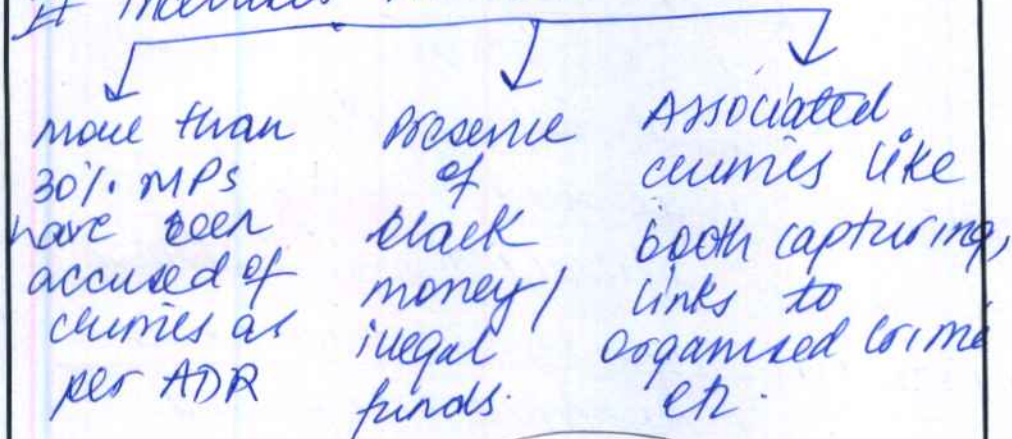 It includes
more than
30%. MPs
have been
accused of
crimes as
per ADR
Presence
of
black
money/
illegal
funds.
Associated
crimes like
booth capturing,
links to
organised crime
etc.